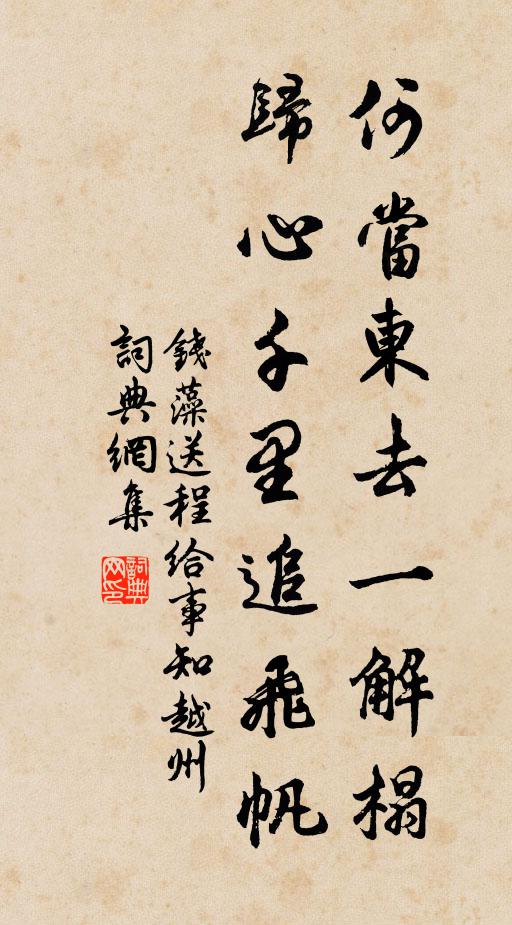 何當東去一解榻
歸心千里追飛帆
錢藻送程給事知越州
詞典網集
詞典网印